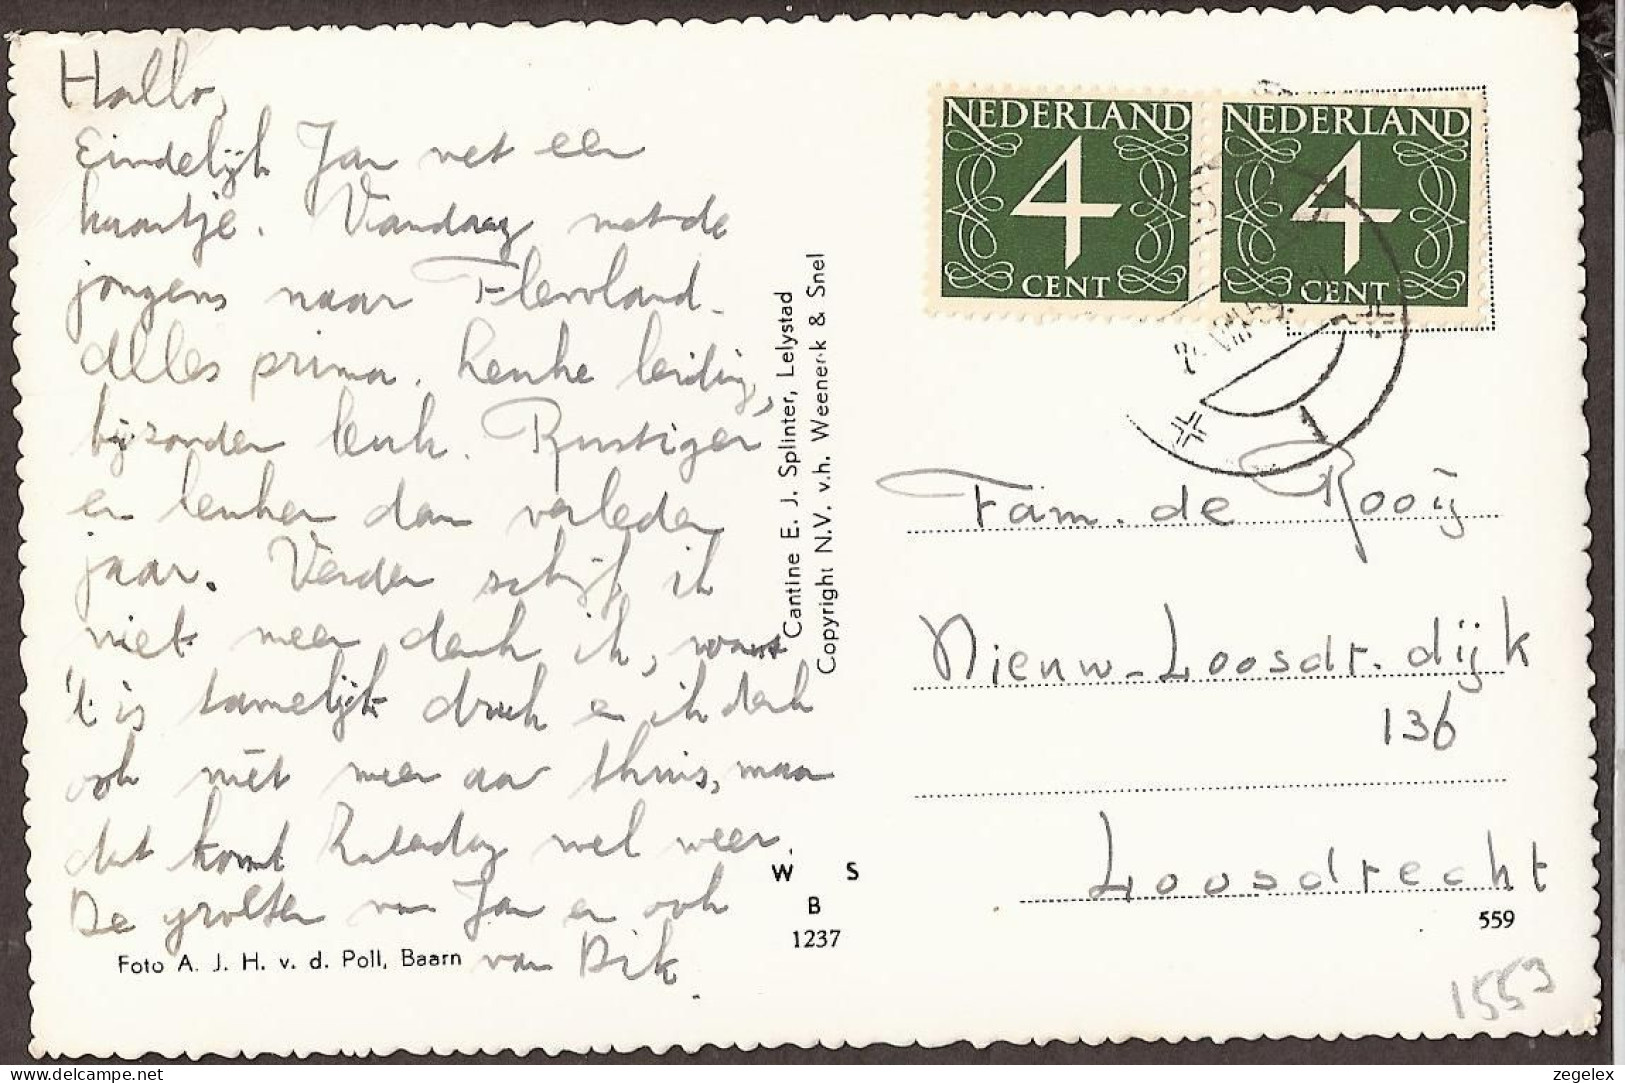 Hallo,
Eindelijk Jan met een
kaartje. Vandaag met de
jongens naar Flevoland.
Alles prima. Leuke leiding,
bijzonder leuk. Rustiger
en leuker dan verleden
jaar. Verder schrijf ik
niet meer denk ik, want
't is tamelijk druk en ik denk
ook niet meer aan thuis, maar
dat komt Zaterdag wel weer.
De groeten van Jan en ook
van Dik
Foto A. J. H. v. d. Poll, Baarn
Cantine E. J. Splinter, Lelystad
Copyright N.V. v.h. Weenenk & Snel
W S
B
1237
NEDERLAND
4
CENT
NEDERLAND
4
CENT
VIII
1
Fam. de Rooij
Nieuw-Loosdr. dijk
136
Loosdrecht
559
1553
zegelex
www.delcampe.net